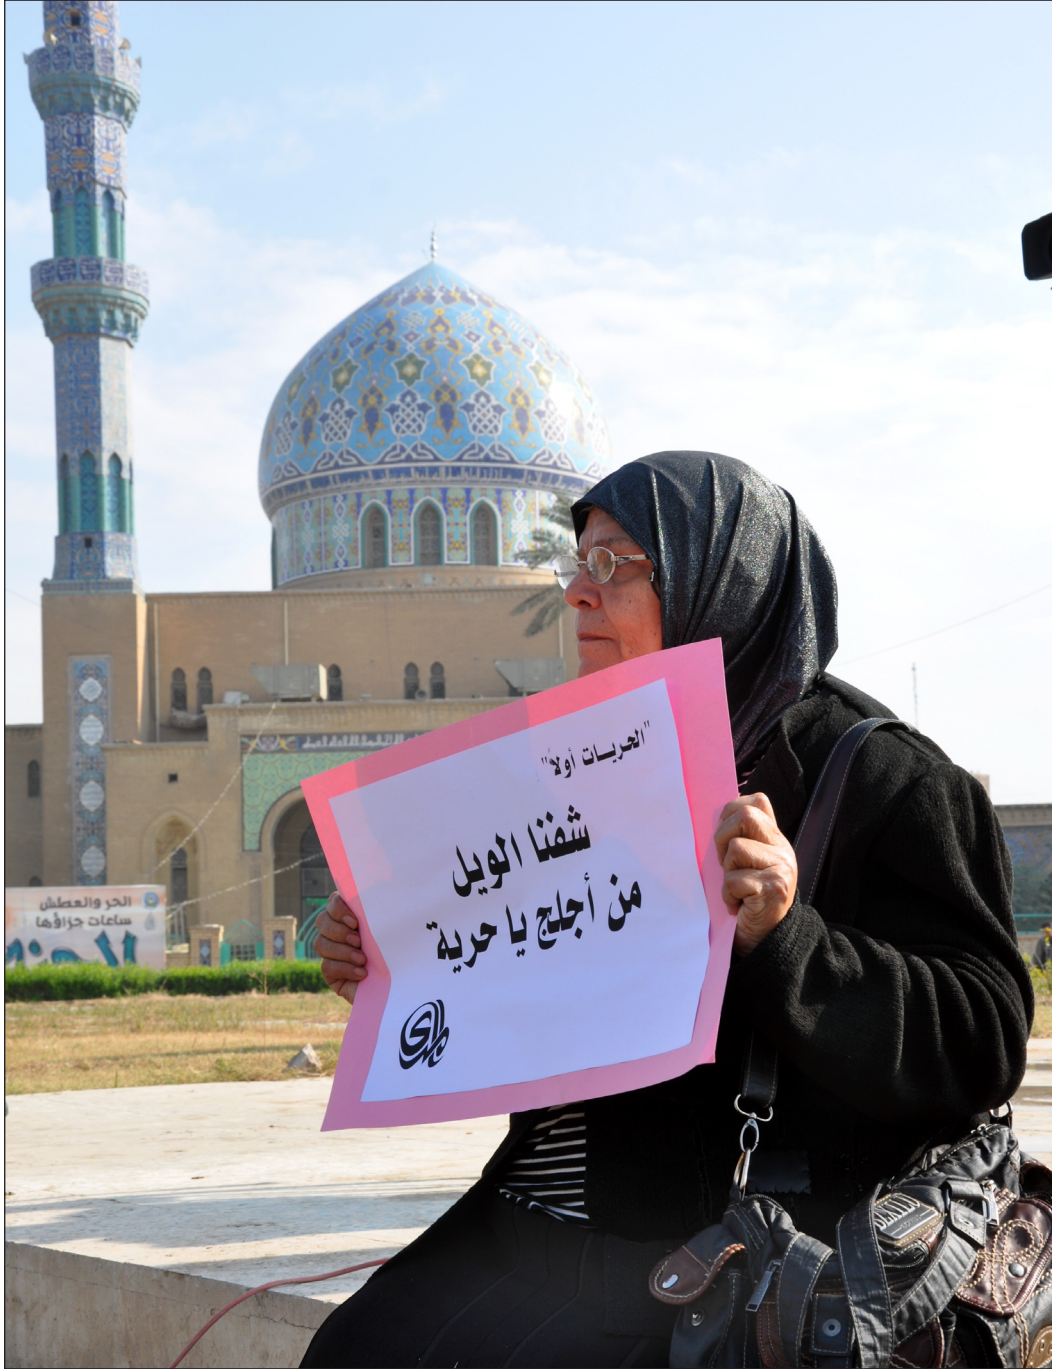 "الحريات أولاً"
شفنا الويل
من أجلج يا حرية
المدى
الحر والعطش
ساعات جزاؤها